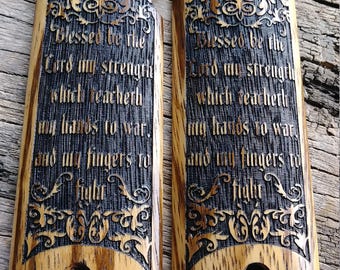 Blessed be the
Lord my strength
which teacheth
my hands to war,
and my fingers to
fight
Blessed be the
Lord my strength
which teacheth
my hands to war,
and my fingers to
fight